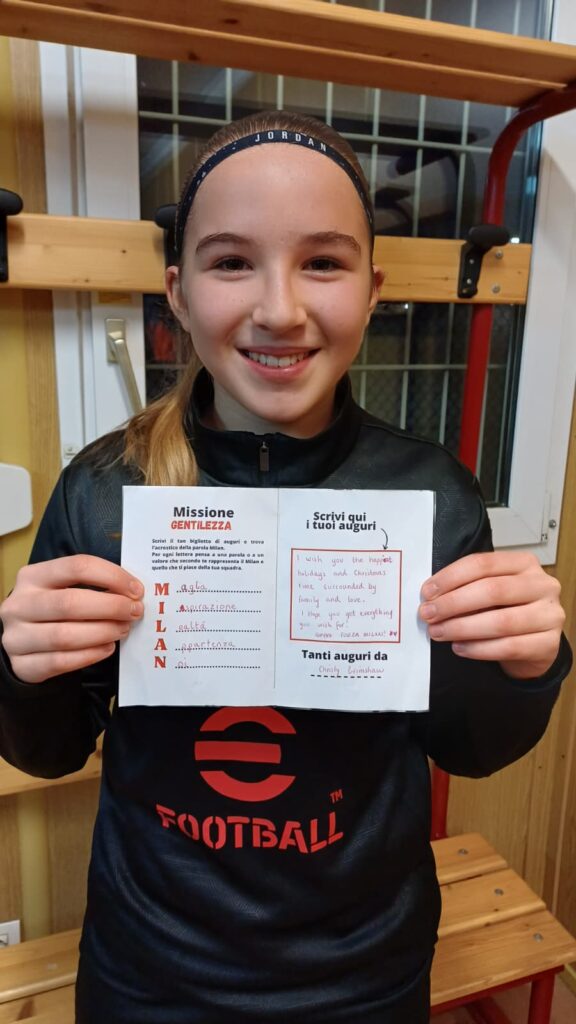 JORDAN
Missione
GENTILEZZA
Scrivi il tuo biglietto di auguri e trova
l'acrostico della parola Milan.
Per ogni lettera pensa a una parola o a un
valore che secondo te rappresenta il Milan e
quello che ti piace della tua squadra.
Maglia
Ispirazione
Lealtá
Appartenza
Noi
Scrivi qui
i tuoi auguri
I wish you the happiest
holidays and Christmas
time surrounded by
family and love.
I hope you get everything
you wish for.
FORZA MILAN!
Tanti auguri da
Christy Grimshaw
FOOTBALL™